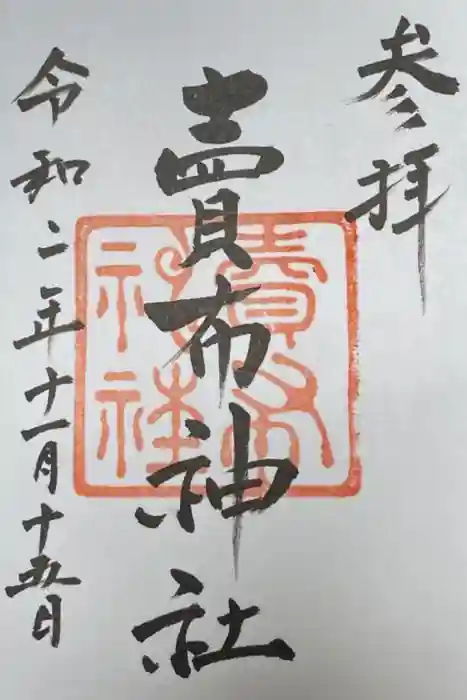 参拝
賣布神社
賣布
神社
令和二年十一月十五日